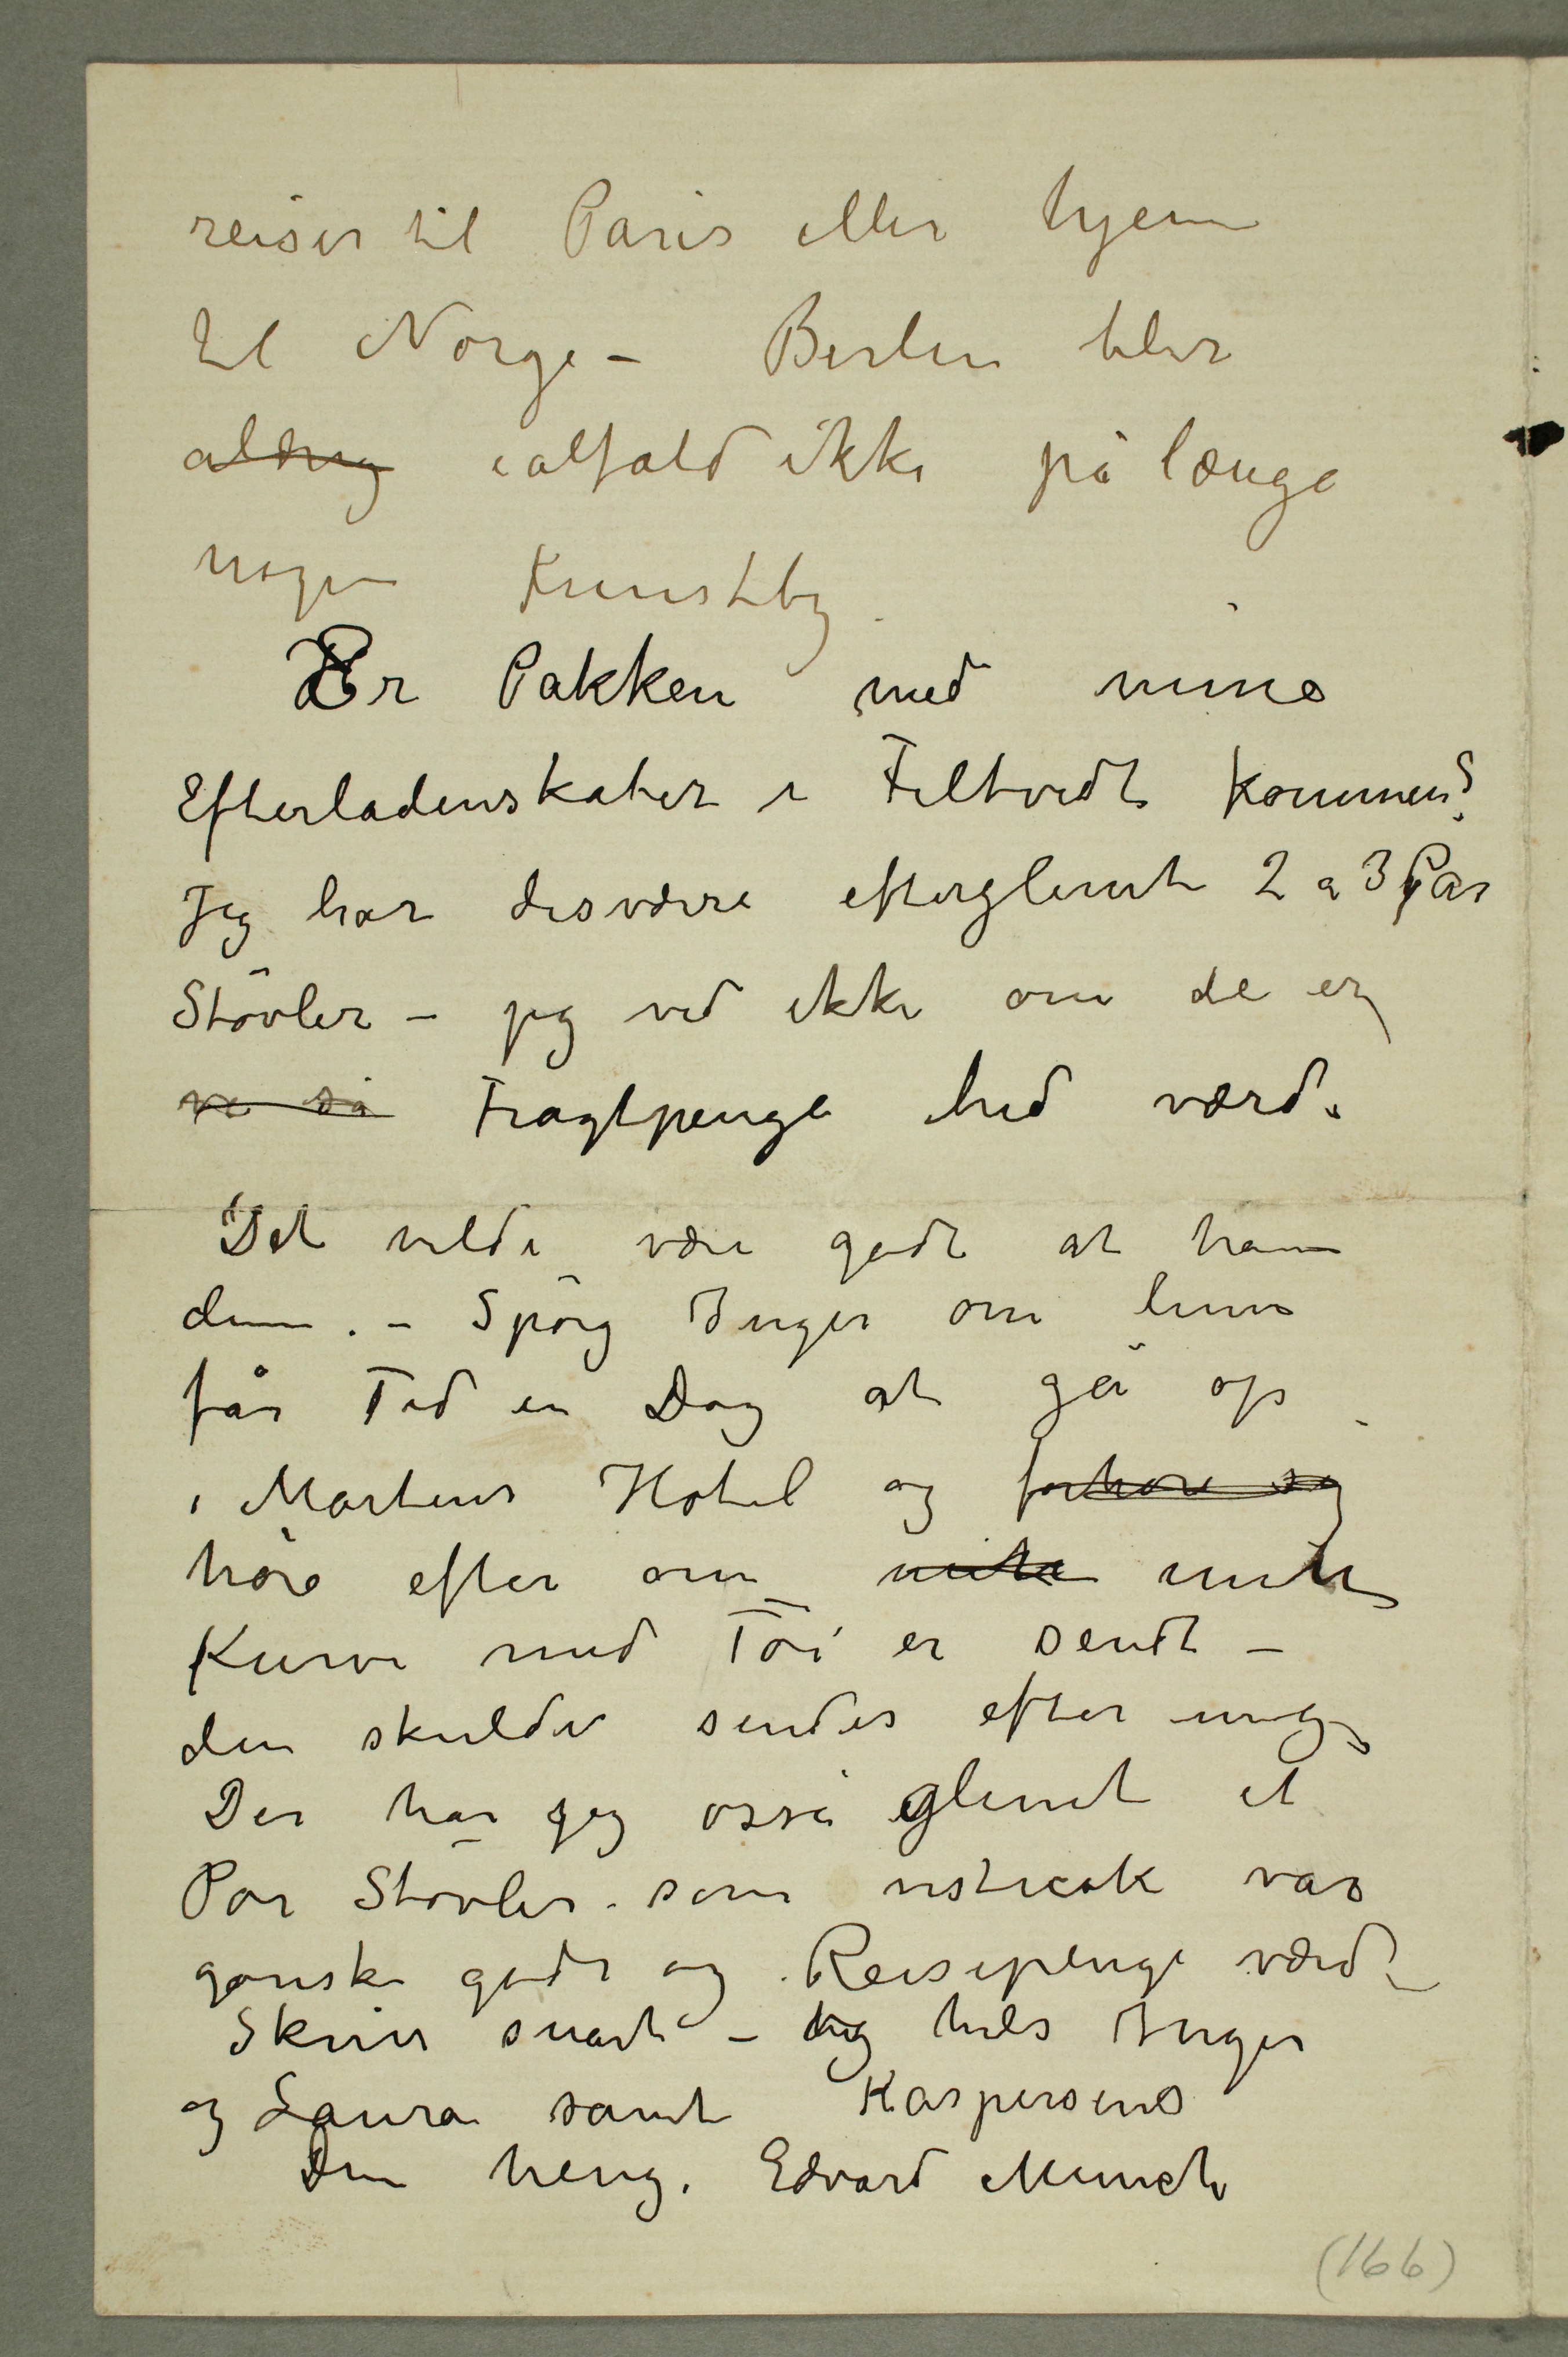 reiser til Paris eller hjem
til Norge – Berlin blir
aldrig ialfald ikke på længe
nogen Kunstby.
Er Pakken med mine
Efterladenskaber i Filtvedt kommen?
Jeg har desværre efterglemt 2 a 3 Par
Støvler – jeg ved ikke om de er
så Fragtpenge hid værd.
Det vilde være godt at ha
dem. – Spørg Inger om hun
får Tid en Dag at gå op
i Martens Hotel og forhøre sig
høre efter om min
Kurv med Tøi er sendt –
den skulde sendes efter mig
Der har jeg osså glemt et
Par Støvler som nistaak var
ganske gode og Reisepenge værd –
Skriv snart – og hils Inger
og Laura samt Kaspersens
Din heng. Edvard Munch
(166)